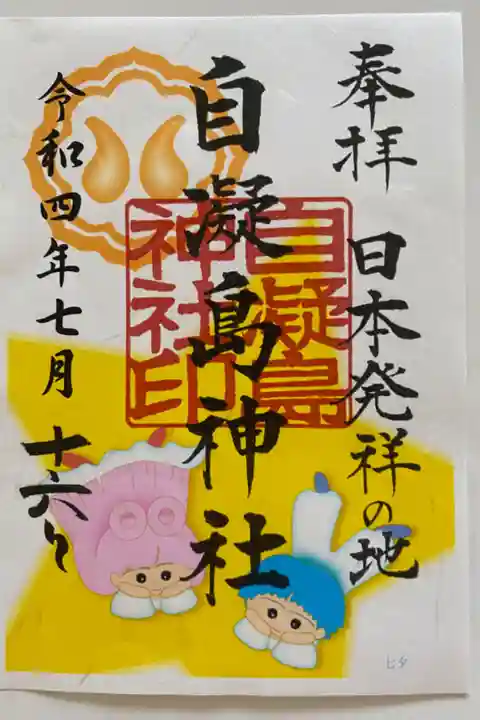 奉拝
日本発祥の地
自凝島神社
自凝島
神社印
令和四年七月十六日
七夕